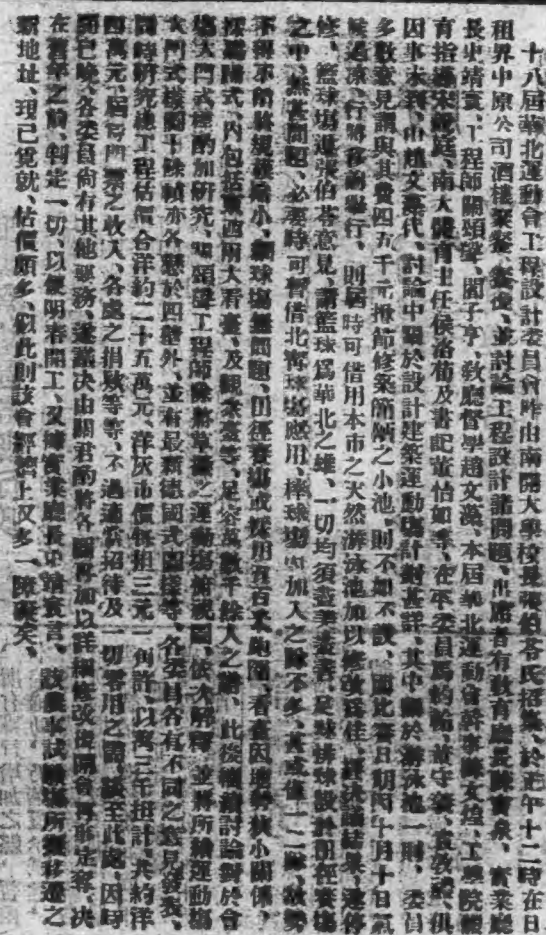 十八屆華北運動會工程設計委員會昨由南開大學校長張伯苓氏招集、於正午十二時在日
租界中原公司酒樓聚餐、餐後、並討論工程設計諸問題、出席者有教育廳長陳寶泉、實業廳
長史靖寰、工程師關頌聲、閻子亨、教廳督學趙文藻、本屆華北運動會幹事陳文煌、工學院體
育指導宋 庭、南大體育主任侯洛荀及書記董怡如等、在平委員馬約翰、董守義、袁敦禮、俱
因事未到、由趙文藻代、討論中關於設計建築運動場計劃甚詳、其中關於游泳池一則、委員
多數意見謂與其費四五千元撙節修築簡陋之小池、則不如不設、因比賽日期內十月十日氣
候過涼、行將移前舉行、則屆時可借用本市之天然游泳池加以修改爲佳、 決議結果、遂停
修、籃球場進張伯苓意見、謂籃球爲華北之雄、一切均須盡美盡善、足球排球設於田徑賽場
之中、無甚問題、必要時可暫借北寧球場應用、棒球場因加入之隊不多、甚或僅一二隊、故勢
不得不縮小、網球場無問題、田徑賽場或採用四百米跑圈、看臺因地勢較小關係、
採 式、內包括東西兩大看臺、及觀禮臺等、足容萬數千餘人之譜、此後 討論對於會
場大門式樣酌加研究、關頌聲工程師 草 之運動場 圖、依次解釋、並將所繪運動場
大門式樣圖十餘幀亦各懸於四壁外、並有最新德國式圖樣等、各委員各有不同之意見發表、
同時研究總工程估價合洋約二十五萬元、洋灰市價每桶三元一角許、以萬三千桶計、共約洋
四萬元、屆時門票之收入、各處之捐款等等、不過 招待及一切零用之需、議至此處、因時
間已晚、各委員尚有其他事務、遂議決由關君酌將各圖再加以詳細修改後開會再形定奪、決
在舊年之前、判定一切、以便明春開工、又據實業廳長史靖寰言、 農事試驗場所 移遷之
新地址、現已覓就、估價頗多、似此則該會經濟上又多一障礙矣、